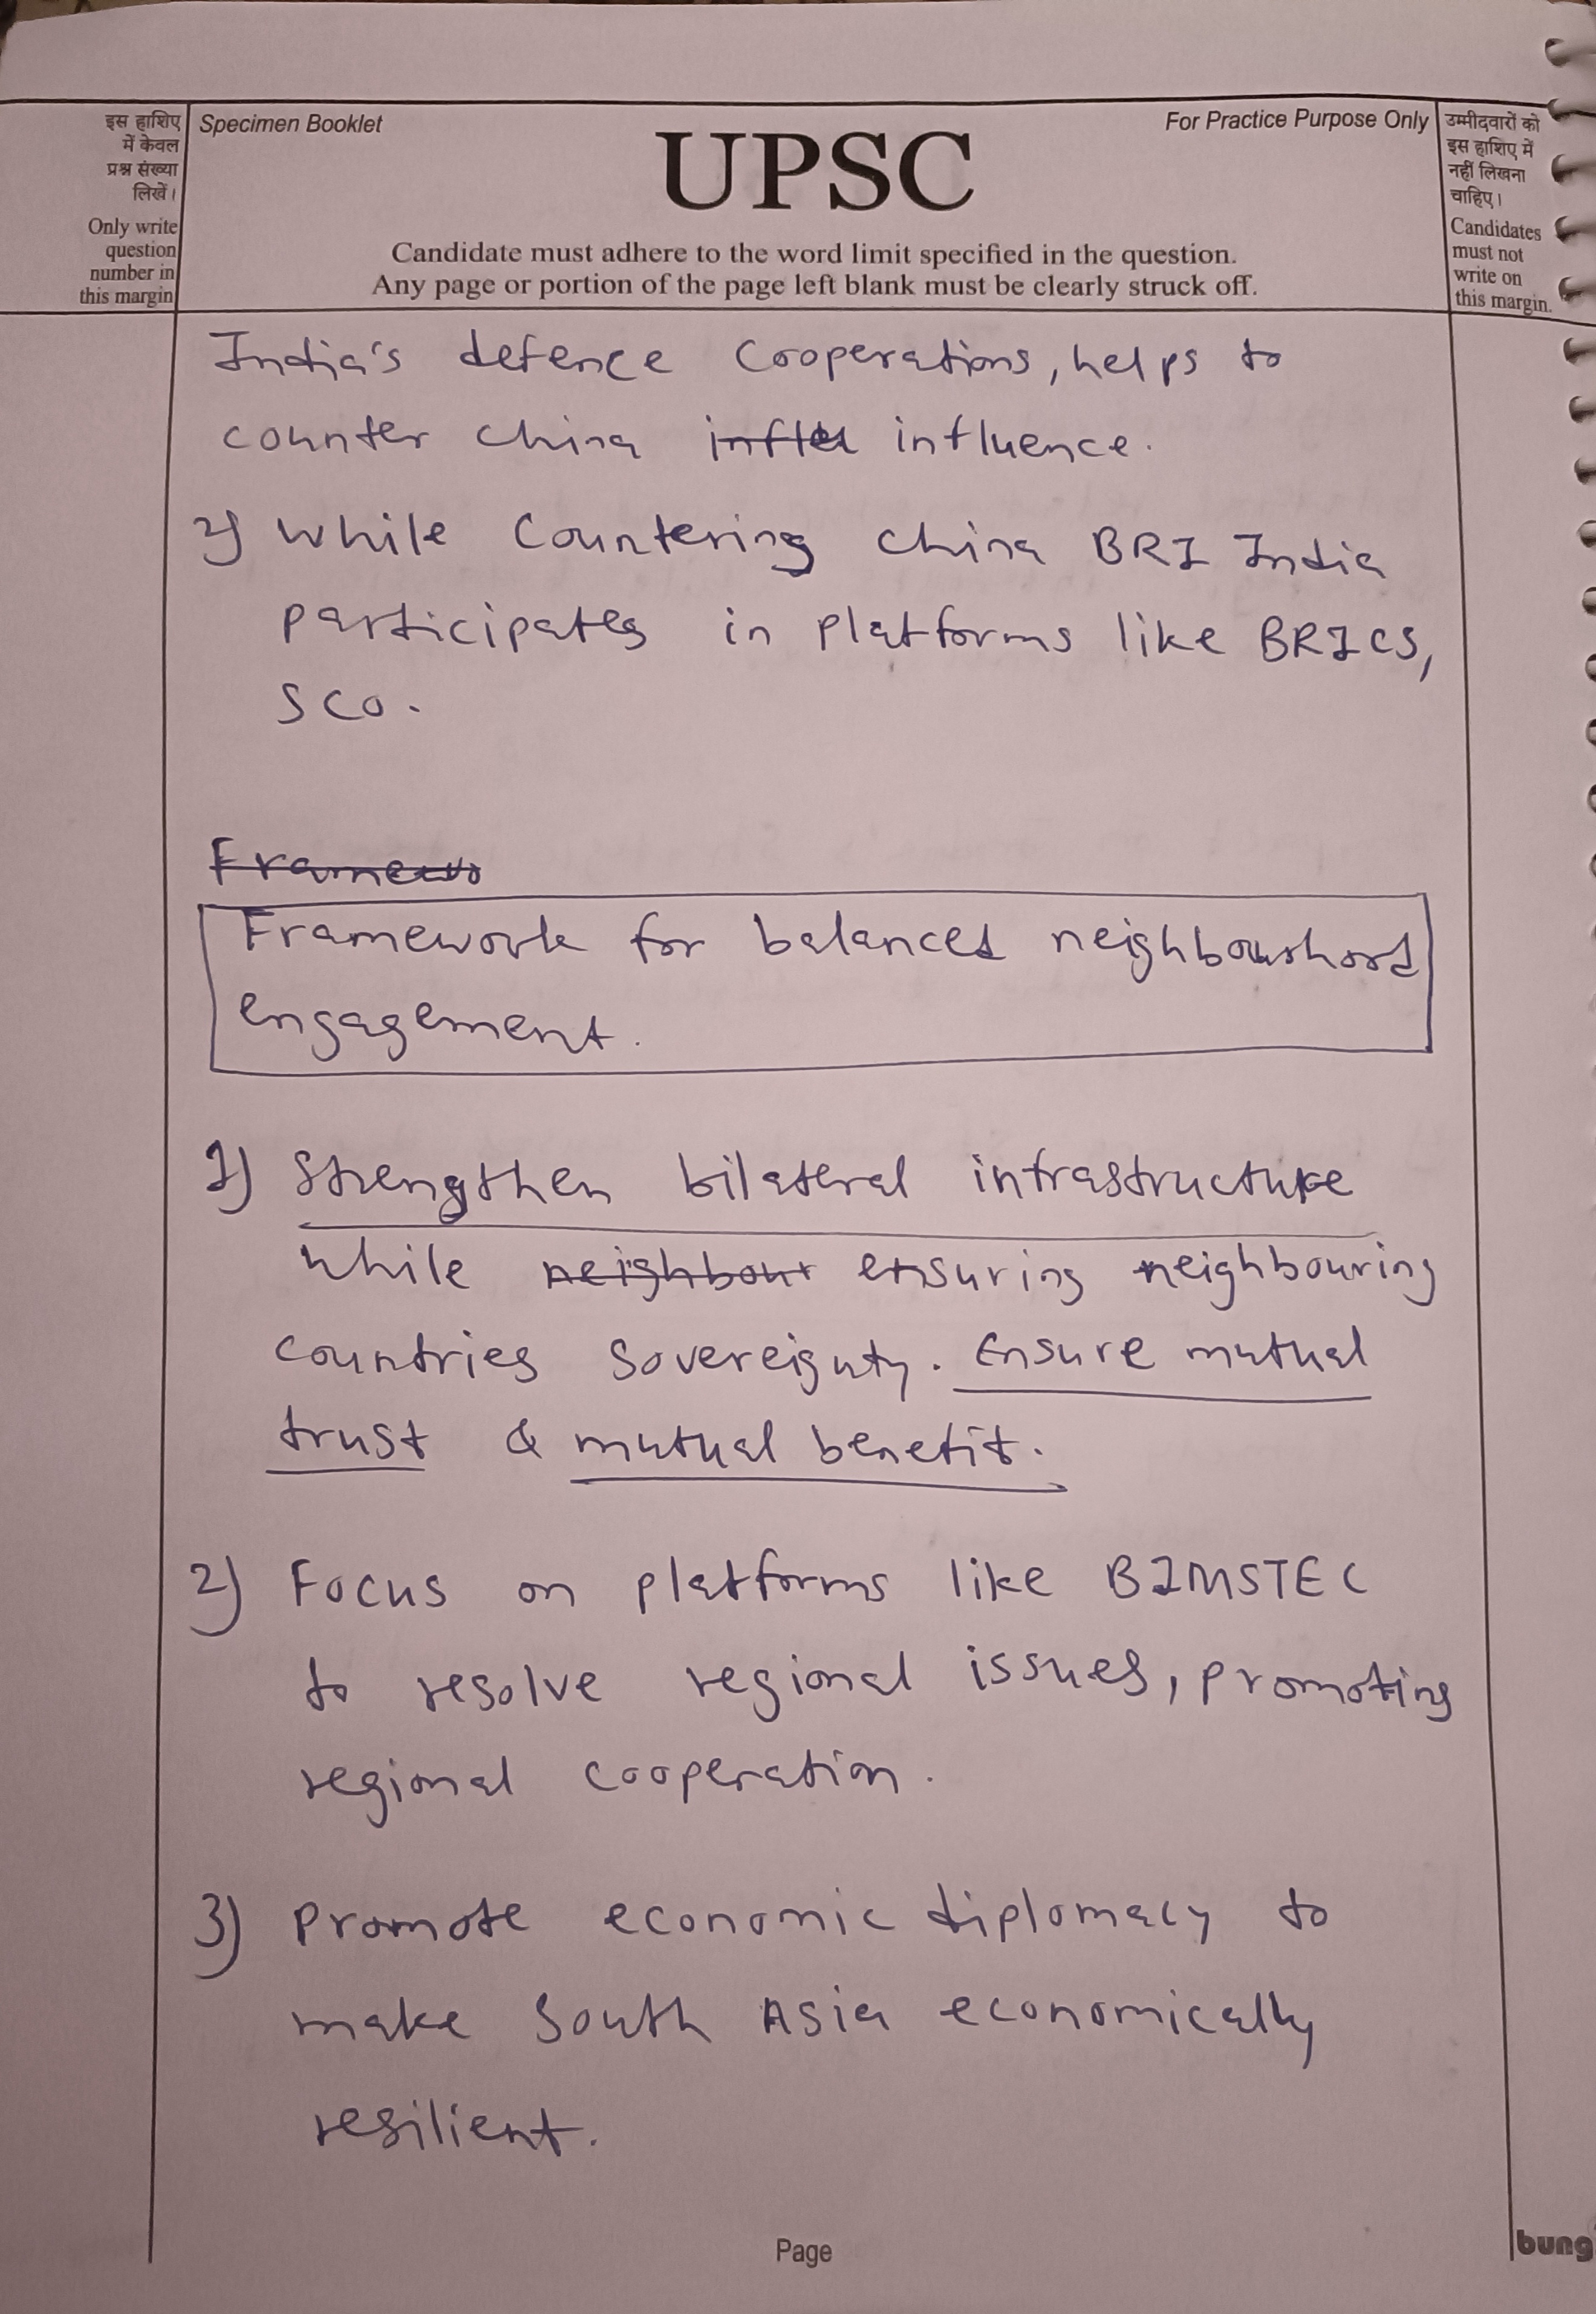 इस हाशिए
में केवल
प्रश्न संख्या
लिखें।
Only write
question
number in
this margin
Specimen Booklet
For Practice Purpose Only
UPSC
Candidate must adhere to the word limit specified in the question.
Any page or portion of the page left blank must be clearly struck off.
उम्मीदवारों को
इस हाशिए में
नहीं लिखना
चाहिए।
Candidates
must not
write on
this margin.
India's defence cooperations, helps to
counter china influence.
2) While countering china BRI India
participates in platforms like BRICS,
SCO.
Framewo
Framework for balanced neighbourhood
engagement.
1) Strengthen bilateral infrastructure
while neighbour ensuring neighbouring
countries sovereignty. Ensure mutual
trust & mutual benefit.
2) Focus on platforms like BIMSTEC
to resolve regional issues, promoting
regional cooperation.
3) Promote economic diplomacy to
make South Asia economically
resilient.
Page
bung